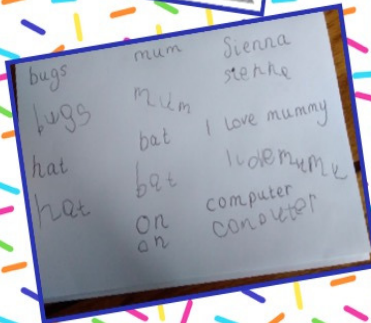 bugs
bugs
hat
hat
mum
mum
bat
bat
on
on
Sienna
sienna
I love mummy
I lovemumy
computer
conputer